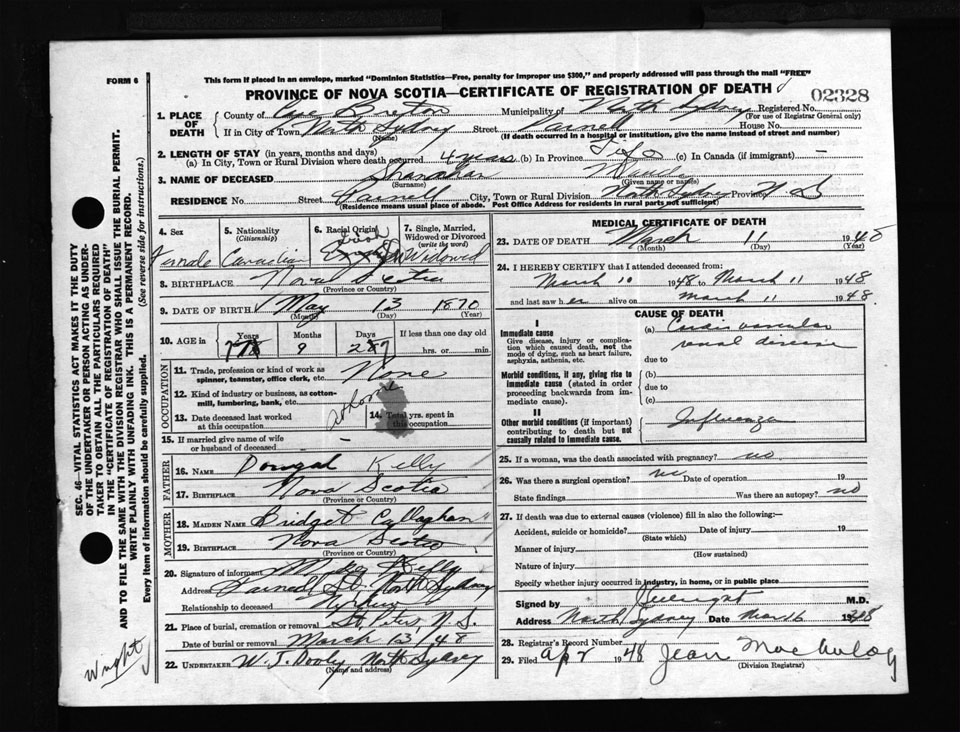 FORM 6
This form if placed in an envelope, marked "Dominion Statistics—Free, penalty for improper use $300," and properly addressed will pass through the mail "FREE"
PROVINCE OF NOVA SCOTIA—CERTIFICATE OF REGISTRATION OF DEATH
02328
1. PLACE OF DEATH County of Cape Breton Municipality of North Sydney Registered No.
(For use of Registrar General only)
If in City of Town North Sydney Street House No.
(Name) (If death occurred in a hospital or institution, give the name instead of street and number)
2. LENGTH OF STAY (in years, months and days)
(a) In City, Town or Rural Division where death occurred 4 years (b) In Province Life (c) In Canada (if immigrant) —
3. NAME OF DECEASED Shanahan
(Surname) (Given name or names)
RESIDENCE No. Street City, Town or Rural Division North Sydney Province N S
(Residence means usual place of abode. Post Office Address for residents in rural parts not sufficient)
4. Sex 5. Nationality (Citizenship) 6. Racial Origin 7. Single, Married, Widowed or Divorced (write the word)
Female Canadian Irish Widowed
8. BIRTHPLACE Nova Scotia
(Province or Country)
9. DATE OF BIRTH May 13 1870
(Month) (Day) (Year)
10. AGE in Years Months Days If less than one day old
9 hrs. or min.
OCCUPATION
11. Trade, profession or kind of work as spinner, teamster, office clerk, etc. None
12. Kind of industry or business, as cotton-mill, lumbering, bank, etc.
13. Date deceased last worked at this occupation
14. Total yrs. spent in this occupation
15. If married give name of wife or husband of deceased —
FATHER
16. NAME Dougal Kelly
17. BIRTHPLACE Nova Scotia
(Province or Country)
MOTHER
18. MAIDEN NAME Bridget Callaghan
19. BIRTHPLACE Nova Scotia
(Province or Country)
20. Signature of informant Kelly
Address St. North Sydney
Relationship to deceased
21. Place of burial, cremation or removal St. Peters N.S.
Date of burial or removal March 13/48
22. UNDERTAKER W. J. Dooly North Sydney
(Name and address)
MEDICAL CERTIFICATE OF DEATH
23. DATE OF DEATH March 11
(Month) (Day) (Year)
24. I HEREBY CERTIFY that I attended deceased from:
March 10 1948 to March 11 1948
and last saw her alive on March 11 1948.
CAUSE OF DEATH
I
Immediate cause
Give disease, injury or complication which caused death, not the mode of dying, such as heart failure, asphyxia, asthenia, etc.
(a) vascular
renal disease
due to
Morbid conditions, if any, giving rise to immediate cause (stated in order proceeding backwards from immediate cause).
(b)
due to
(c)
II
Other morbid conditions (if important) contributing to death but not causally related to immediate cause.
Influenza
25. If a woman, was the death associated with pregnancy? no
26. Was there a surgical operation? no Date of operation 19
State findings Was there an autopsy? no
27. If death was due to external causes (violence) fill in also the following:—
Accident, suicide or homicide? Date of injury 19
(State which)
Manner of injury
(How sustained)
Nature of injury
Specify whether injury occurred in industry, in home, or in public place
Signed by M.D.
Address North Sydney Date Mar 16
28. Registrar's Record Number
29. Filed Apr 1948 Jean
(Division Registrar)
SEC. 46—VITAL STATISTICS ACT MAKES IT THE DUTY
OF THE UNDERTAKER OR PERSON ACTING AS UNDERTAKER TO OBTAIN ALL THE PARTICULARS REQUIRED
IN THE "CERTIFICATE OF REGISTRATION OF DEATH"
AND TO FILE THE SAME WITH THE DIVISION REGISTRAR WHO SHALL ISSUE THE BURIAL PERMIT.
WRITE PLAINLY WITH UNFADING INK. THIS IS A PERMANENT RECORD.
Every item of information should be carefully supplied. (See reverse side for instructions.)
Wright